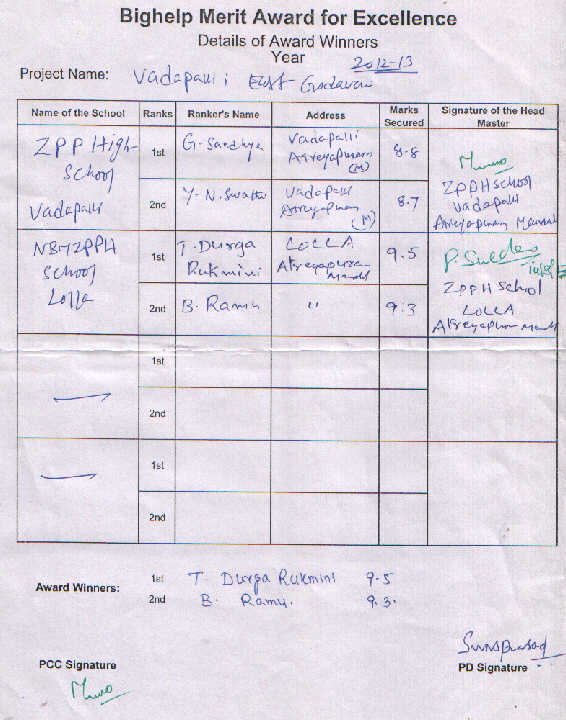 Bighelp Merit Award for Excellence
Details of Award Winners
Year 2012-13
Project Name: Vadapalli East Godavari
Name of the School Ranks Ranker's Name Address Marks Secured Signature of the Head Master
ZPP High- School Vadapalli
1st G. Sandhya Vadapalli Atreyapuram (M) 8.8
2nd Y. N. Swathi Vadapalli Atreyapuram (M) 8.7
ZPPH School Vadapalli Atreyapuram Mandal
NBMZPPH School Lolla
1st T. Durga Rukmini LOLLA Atreyapuram Mandal 9.5
2nd B. Ramu " 9.3
ZPPH School LOLLA Atreyapuram Mandal
1st
2nd
1st
2nd
Award Winners:
1st T. Durga Rukmini 9.5
2nd B. Ramu. 9.3.
PCC Signature
PD Signature